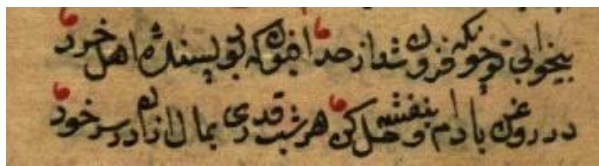 بیخوابی تو چونکه فزون شد از حد افیون که اهل خرد
در روغن بادام و بنفشه حل کن هر شب قدری بمال ازان در سر خود